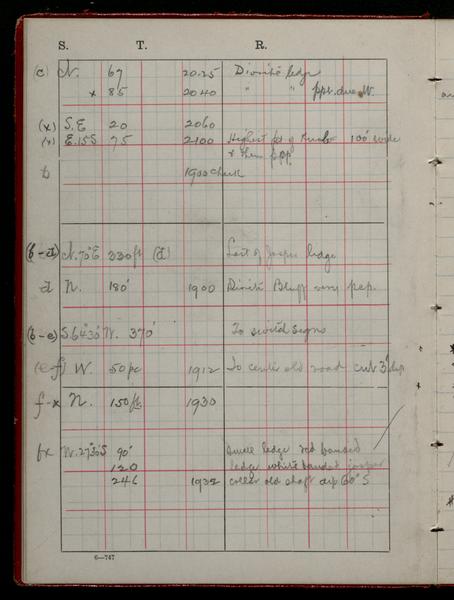 S. T. R.
(c) N. 67 2025 Diorite ledge
x 85 2040 " " ppt. due W.
(x) S.E 20 2060
(v) E.15S 75 2100 Highest pt of 100' wide
& then ppp
b 1900 check
(b-d) N.70°E 330 ft (d) Last of Jasper ledge
d N. 180' 1900 Diorite Bluff very pep.
(b-e) S.64°30'W. 370' To
(e-f) W. 50 pc 1912 To center old road cut 3' dep
f-x N. 150 ft 1930
fx N.27°30'S 90' ledge red banded
120 ledge white banded jasper
246 1932 collar old shaft dip 60° S
6—747